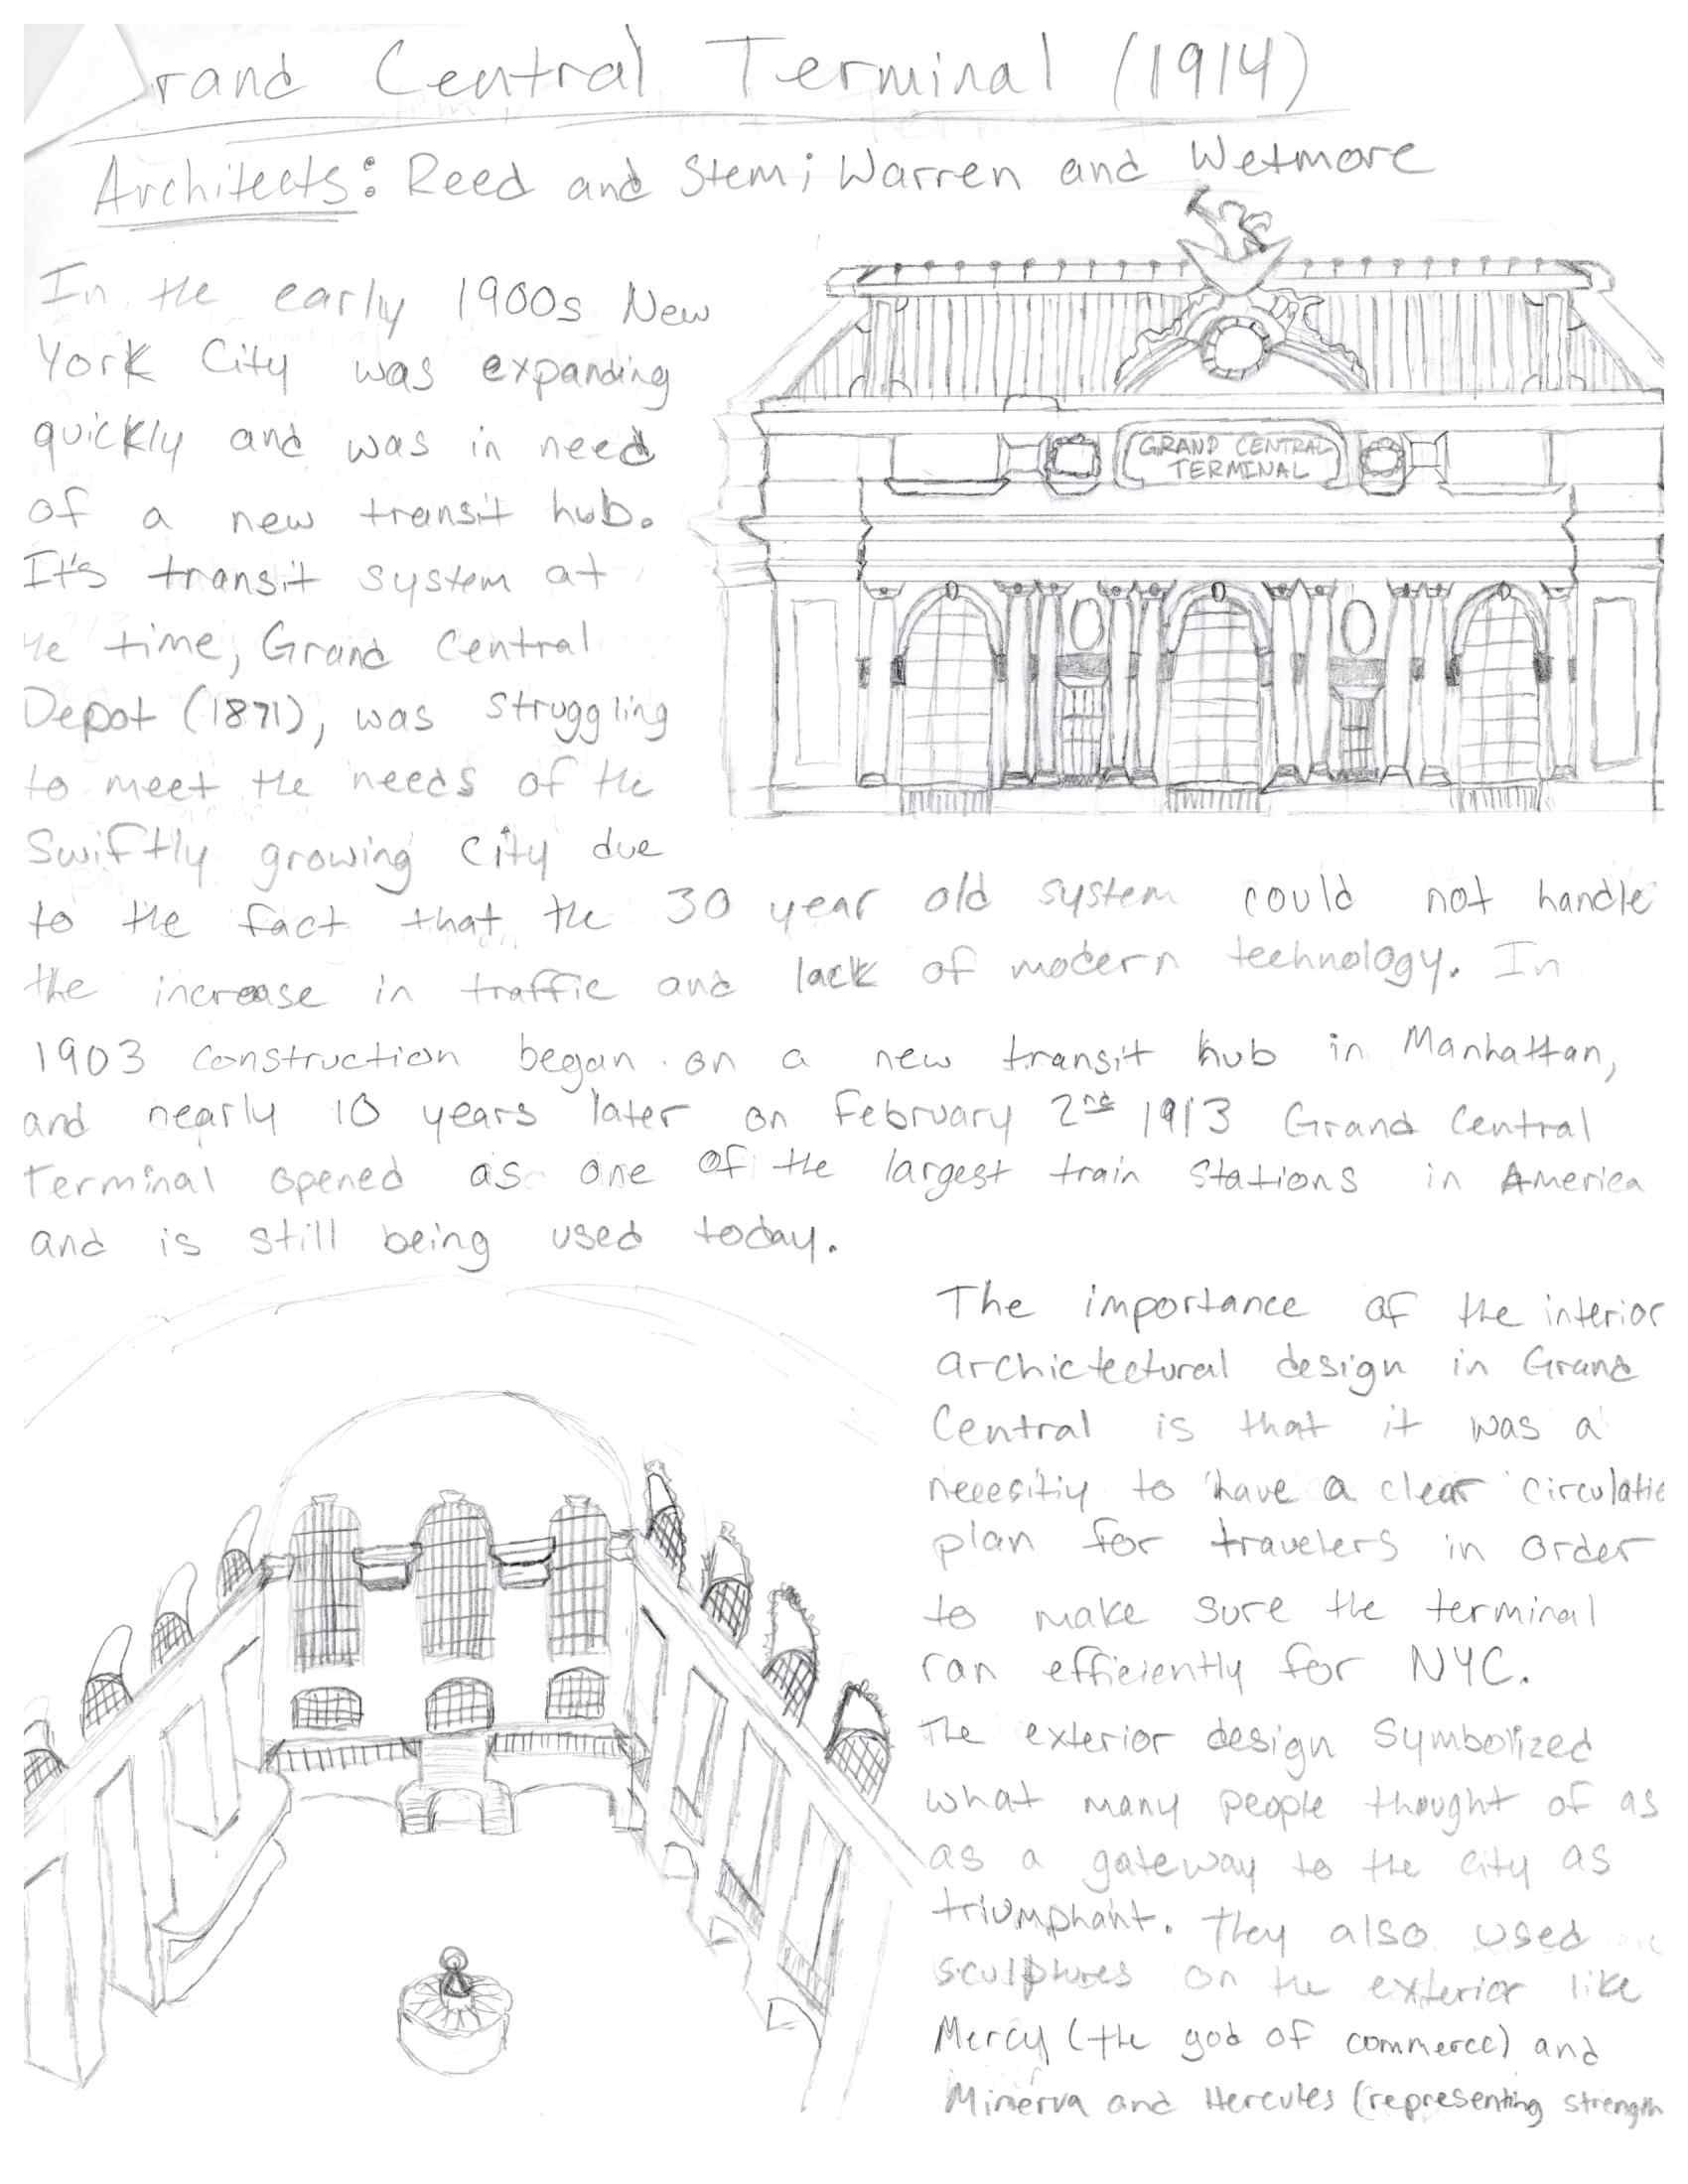 rand Central Terminal (1914)
Architects: Reed and Stem; Warren and Wetmore
In the early 1900s New
York City was expanding
quickly and was in need
of a new transit hub.
It's transit system at
he time, Grand Central
Depot (1871), was struggling
to meet the needs of the
swiftly growing city due
to the fact that the 30 year old system could not handle
the increase in traffic and lack of modern technology. In
1903 construction began on a new transit hub in Manhattan,
and nearly 10 years later on February 2nd 1913 Grand Central
Terminal opened as one of the largest train stations in America
and is still being used today.
GRAND CENTRAL
TERMINAL
The importance of the interior
archictectural design in Grand
Central is that it was a
necesitiy to have a clear circulatio
plan for travelers in order
to make sure the terminal
ran efficiently for NYC.
The exterior design symbolized
what many people thought of as
as a gateway to the city as
triumphant. They also used
sculptures on the exterior like
Mercy (the god of commerce) and
Minerva and Hercules (representing strength